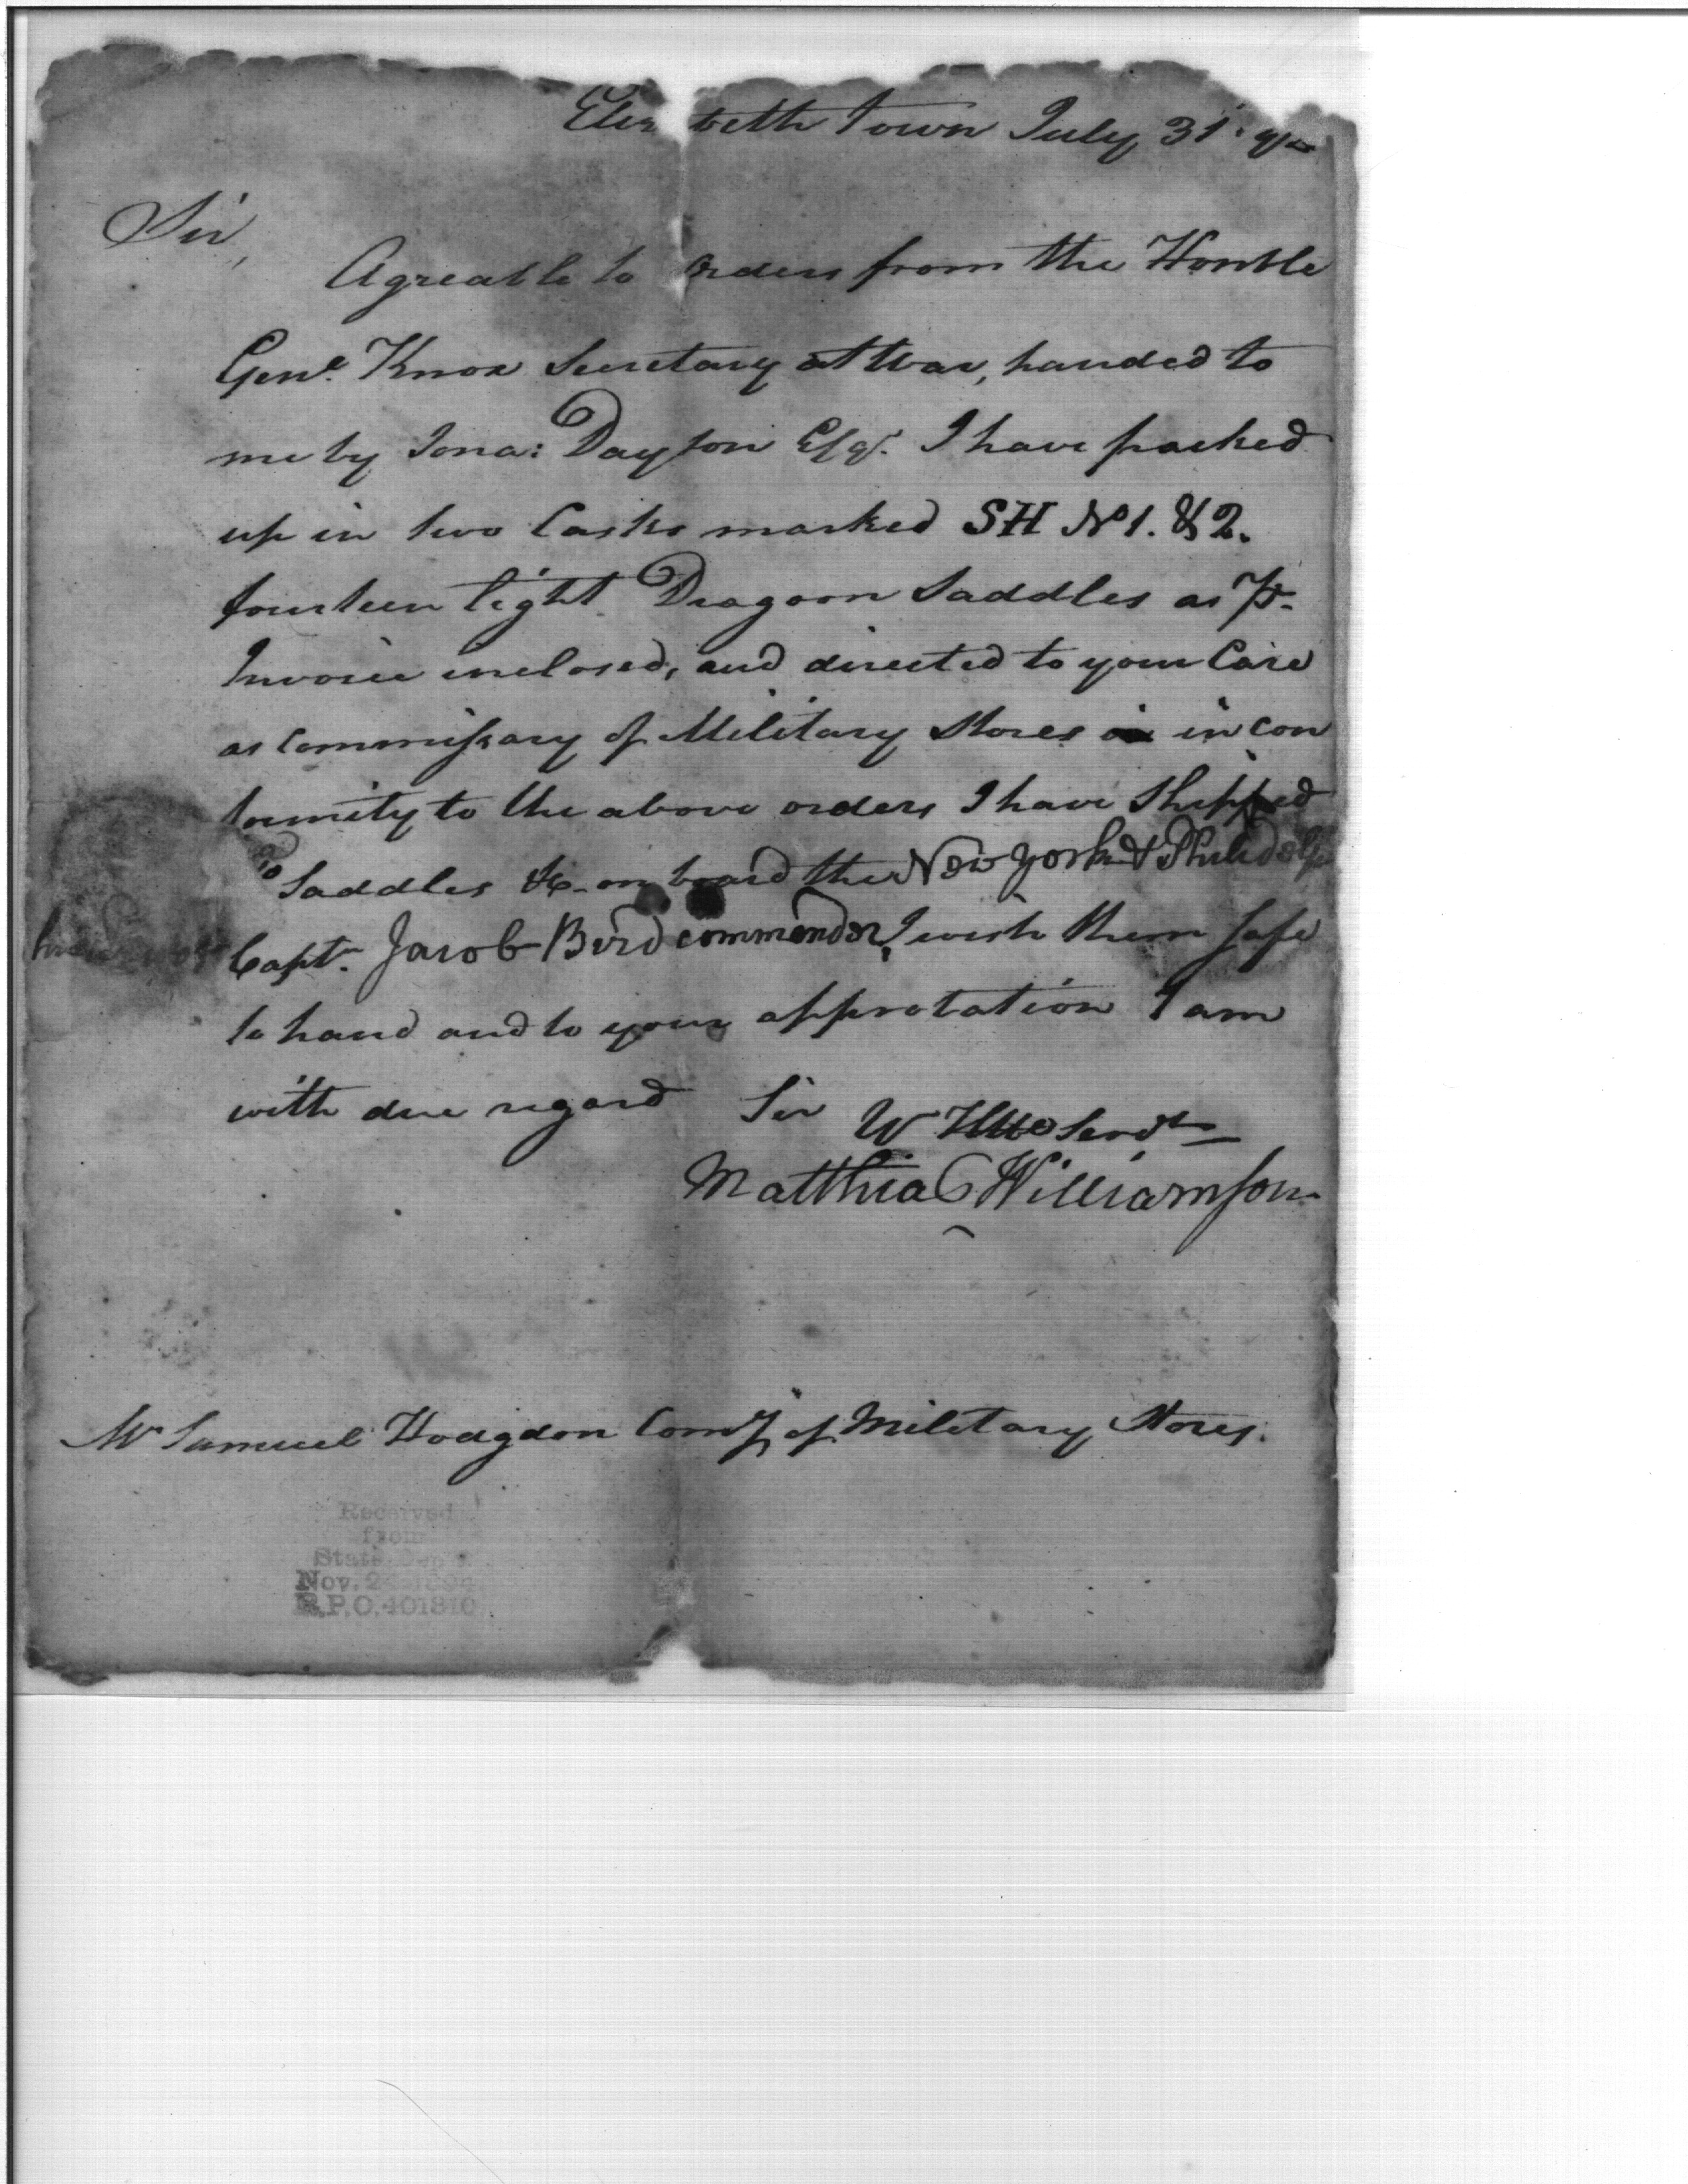 Eliz beth Town July 31
Sir,
Agreable to Orders from the Honble
Genl. Knox Secretary at War, handed to
me by Jona: Dayton Esqr. I have packed
up in two Casks marked SH No 1. & 2.
fourteen light Dragoon Saddles as Pr.
Invoice inclosed, and directed to your Care
as Commissary of Military Stores in con
formity to the above orders I have Shipped
Saddles &c. on board the New York & Philadelp
Capt. Jacob Bird commander, I wish them safe
to hand and to your approbation I am
with due regard Sir
Hble Servt
Matthias Williamson
Mr Samuel Hodgdon Comy of Military Stores.
Received
from
State Dep't.
Nov. 2
R.P.O. 401810